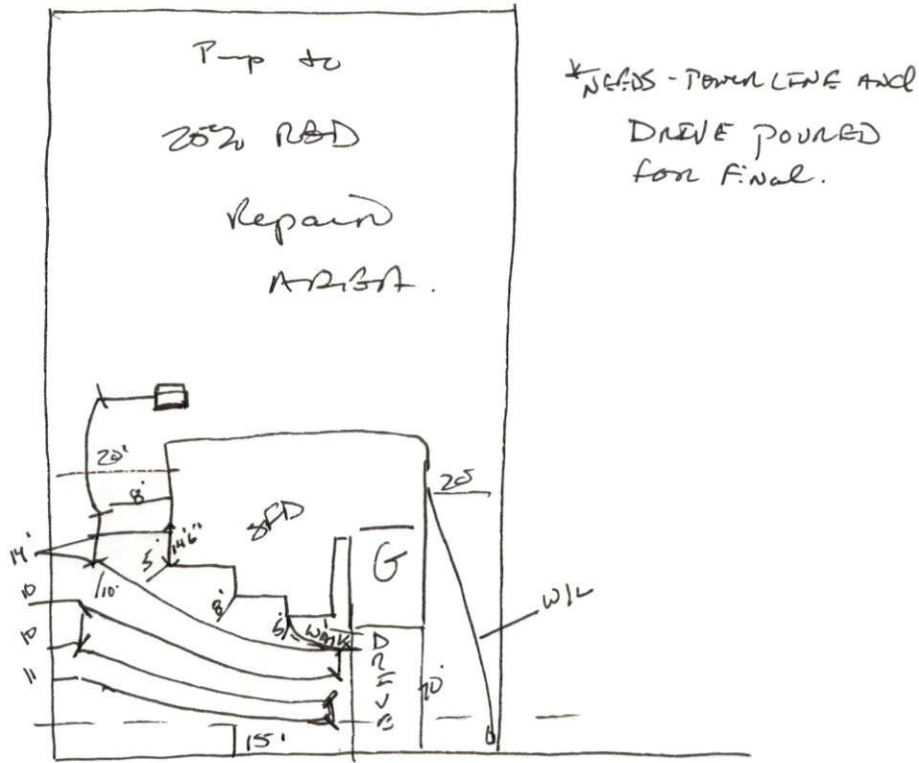 Pump to
25% RED
Repair
AREA.
*NEEDS - POWER LINE AND
DRIVE POURED
for Final.
20'
8'
SFD
20'
14'
5'
14'6"
G
10'
10
8'
W/L
6'
WALK
10
11
DRIVE
70'
15'